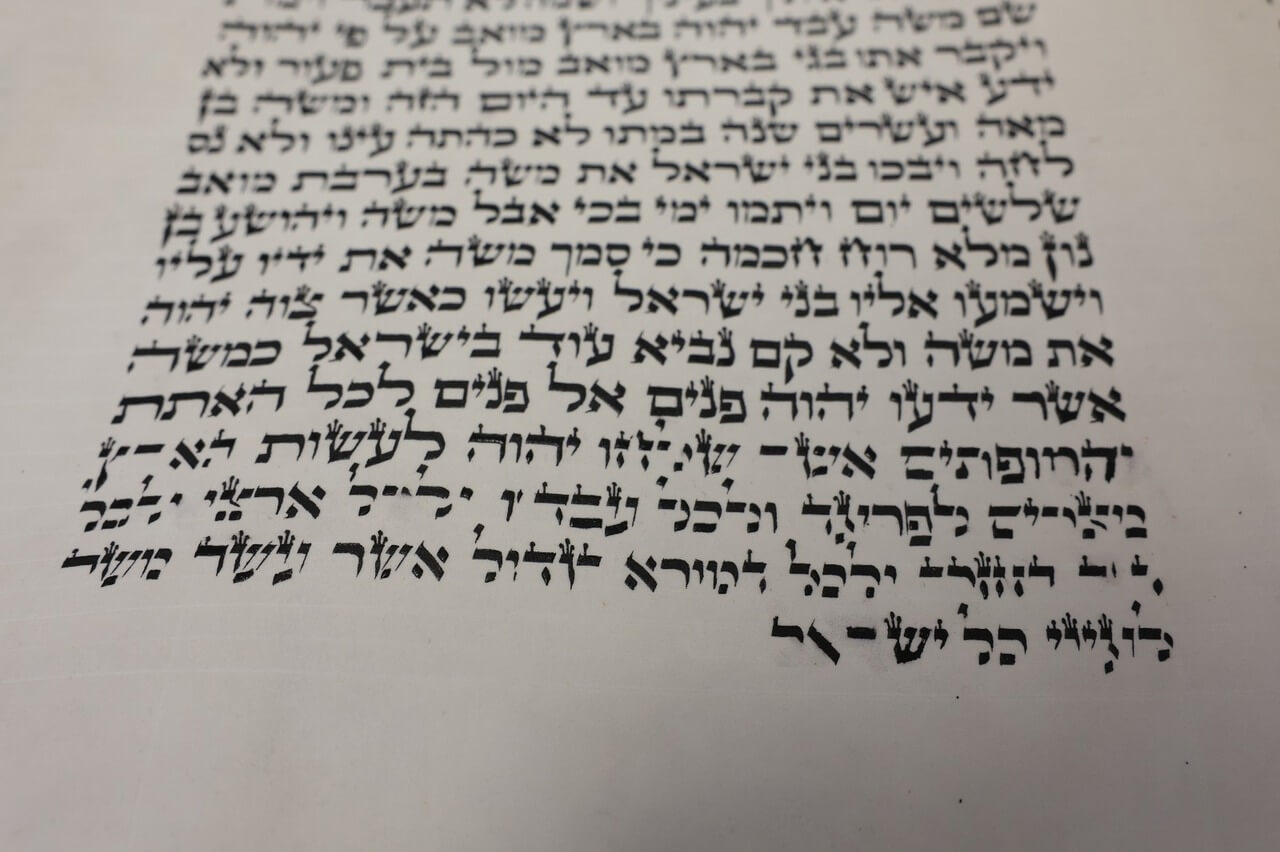 שם משה עבד יהוה בארץ מואב על פי יהוה
ויקבר אתו בגי בארץ מואב מול בית פעור ולא
ידע איש את קברתו עד היום הזה ומשה בן
מאה ועשרים שנה במתו לא כהתה עינו ולא נס
לחה ויבכו בני ישראל את משה בערבת מואב
שלשים יום ויתמו ימי בכי אבל משה ויהושע בן
נון מלא רוח חכמה כי סמך משה את ידיו עליו
וישמעו אליו בני ישראל ויעשו כאשר צוה יהוה
את משה ולא קם נביא עוד בישראל כמשה
אשר ידעו יהוה פנים אל פנים לכל האתת
והמופתים אשר שלחו יהוה לעשות
ארצו
אשר